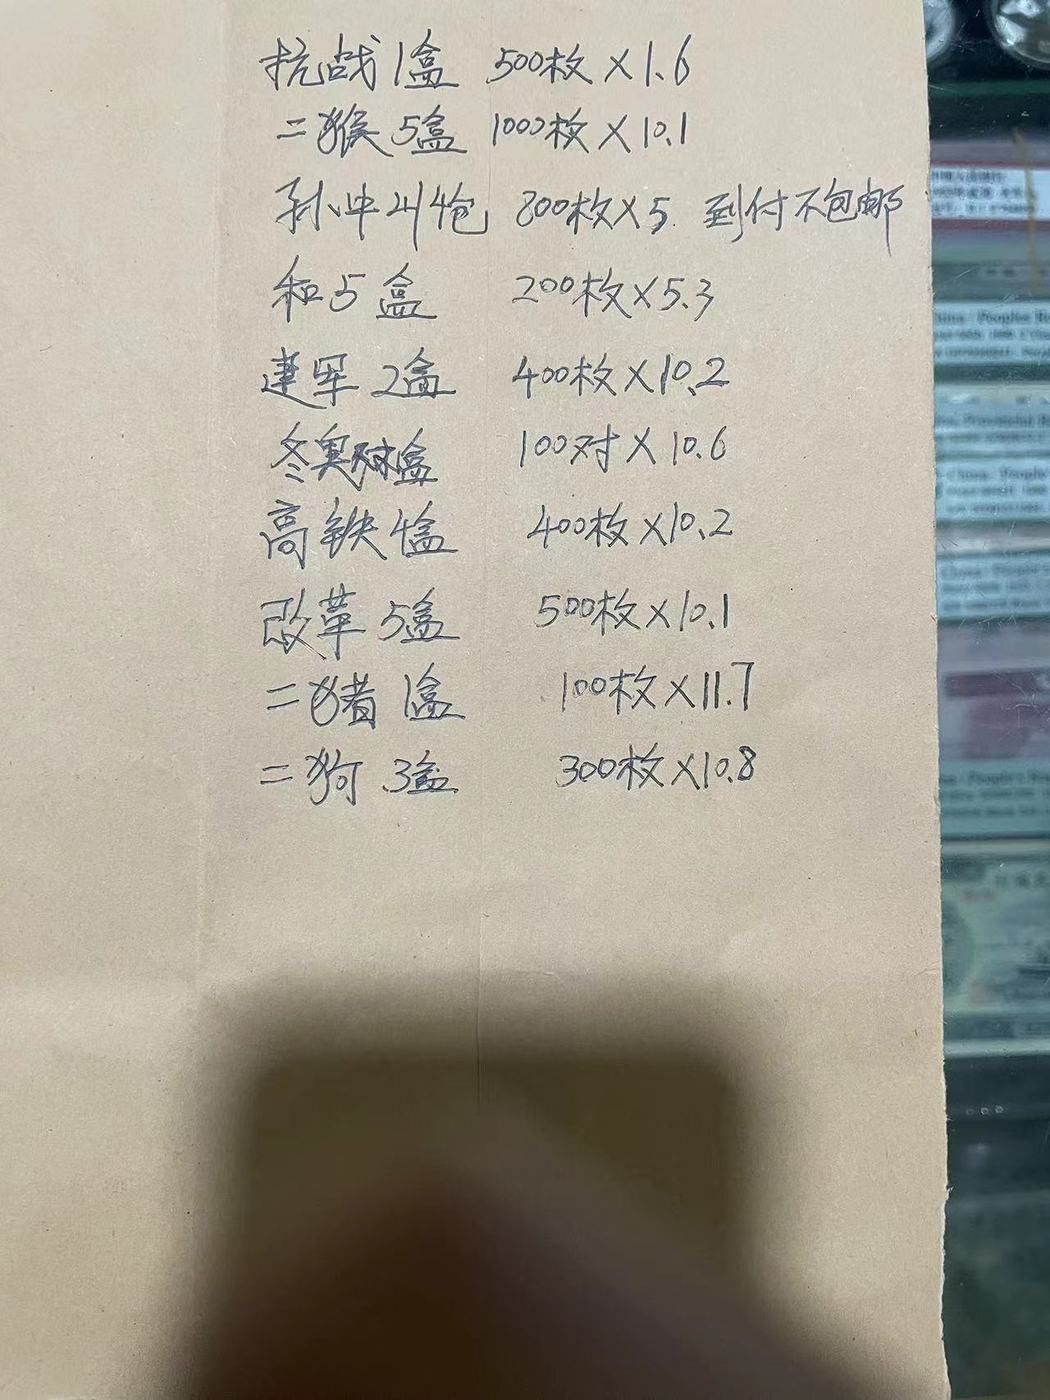 抗战1盒 500枚×1.6
二猴5盒 1000枚×10.1
孙中山4包 800枚×5. 到付不包邮
和5盒 200枚×5.3
建军2盒 400枚×10.2
冬奥对1盒 100对×10.6
高铁4盒 400枚×10.2
改革5盒 500枚×10.1
二猪1盒 100枚×11.7
二狗3盒 300枚×10.8